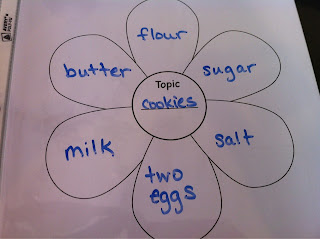 flour
butter
sugar
Topic
cookies
milk
salt
two
eggs